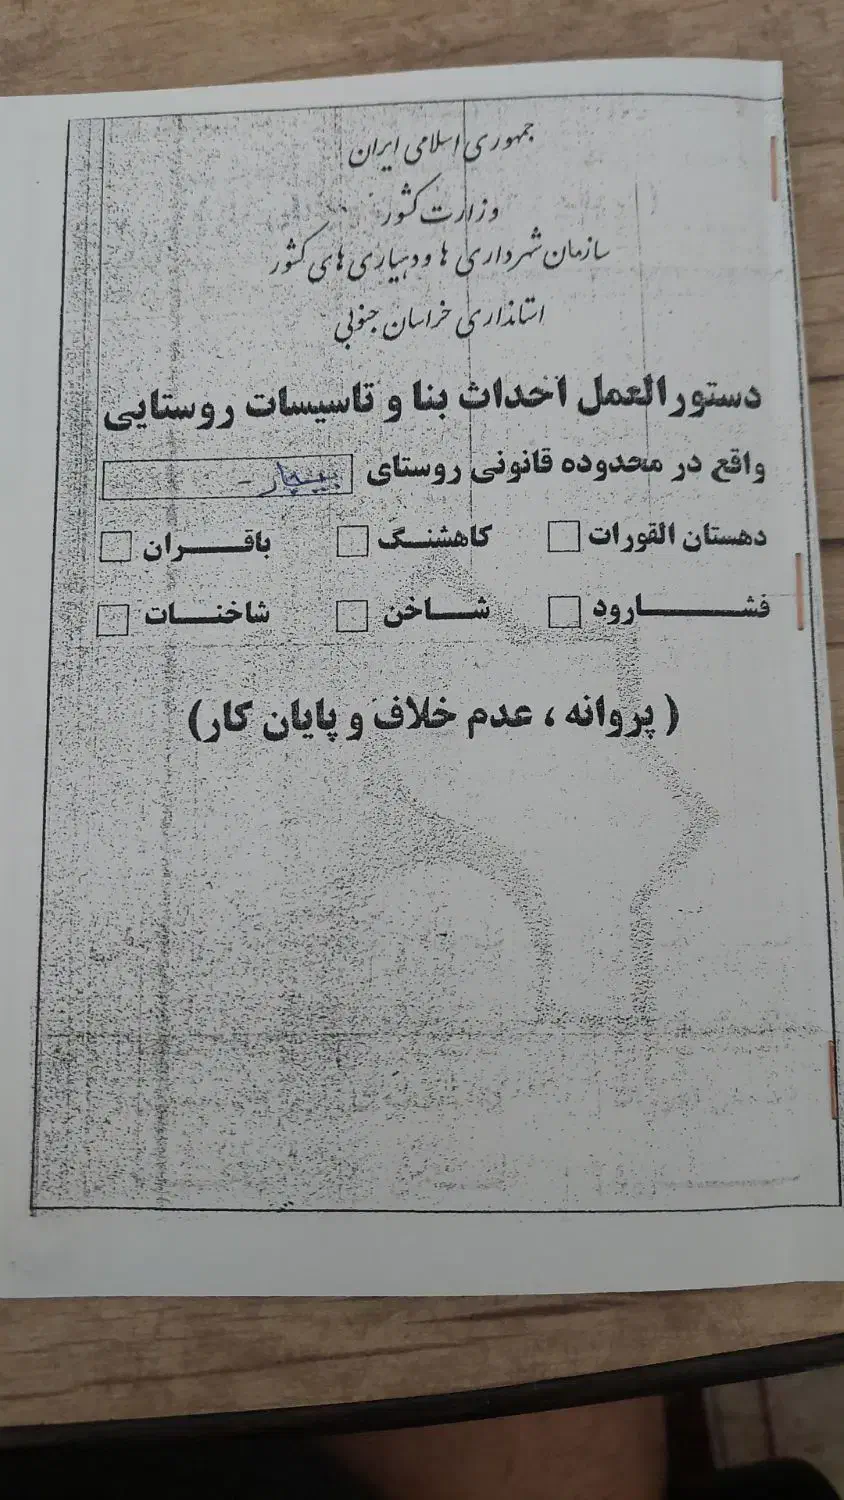 جمهوری اسلامی ایران
وزارت کشور
سازمان شهرداری ها و دهیاری های کشور
استانداری خراسان جنوبی
دستورالعمل احداث بنا و تاسیسات روستایی
واقع در محدوده قانونی روستای
دهستان القورات کاهشنگ باقران
فشارود شاخن شاخنات
( پروانه ، عدم خلاف و پایان کار)